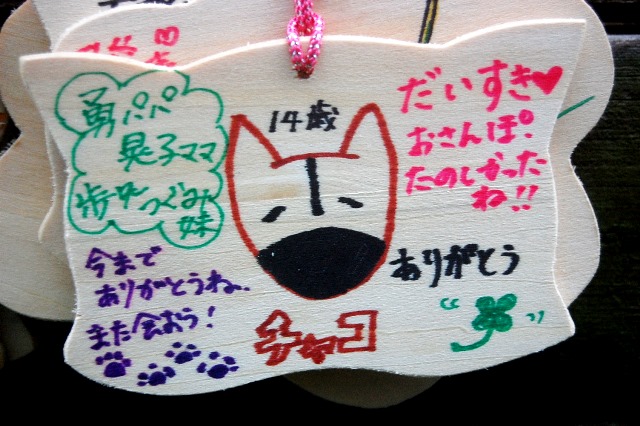 14歳
勇パパ
晃子ママ
つぐみ
妹
だいすき♥
おさんぽ。
たのしかった
ね!!
今まで
ありがとうね。
また会おう!
ありがとう
チャコ